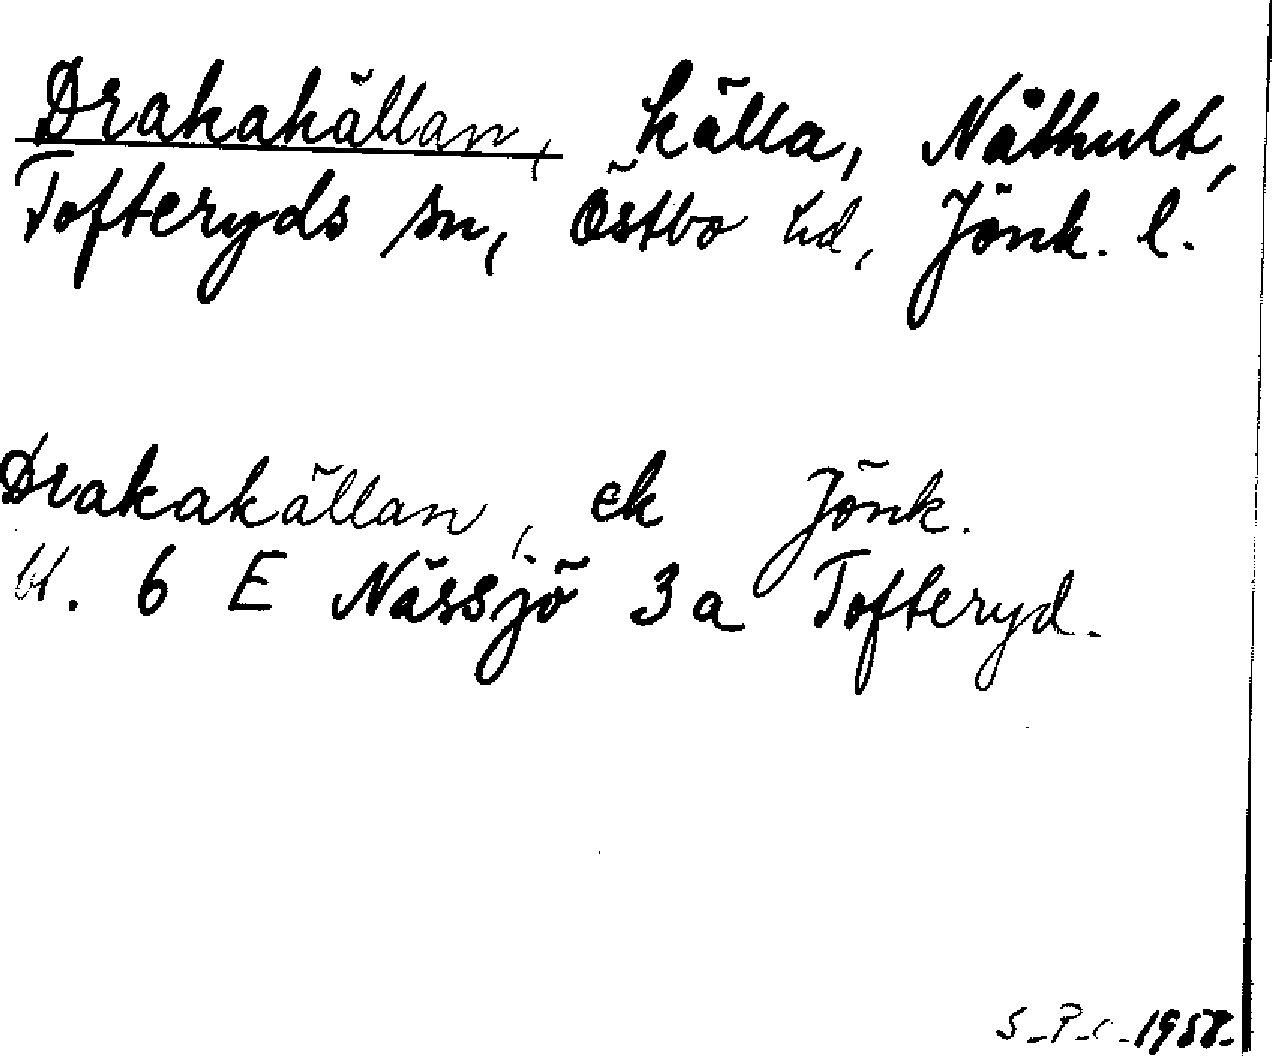 Drakakällan, källa, Nåthult,
Tofteryds sn, Östbo hd, Jönk. l.
Drakakällan, ek Jönk.
bl. 6 E Nässjö 3a Tofteryd.
S-P.C.-1958.